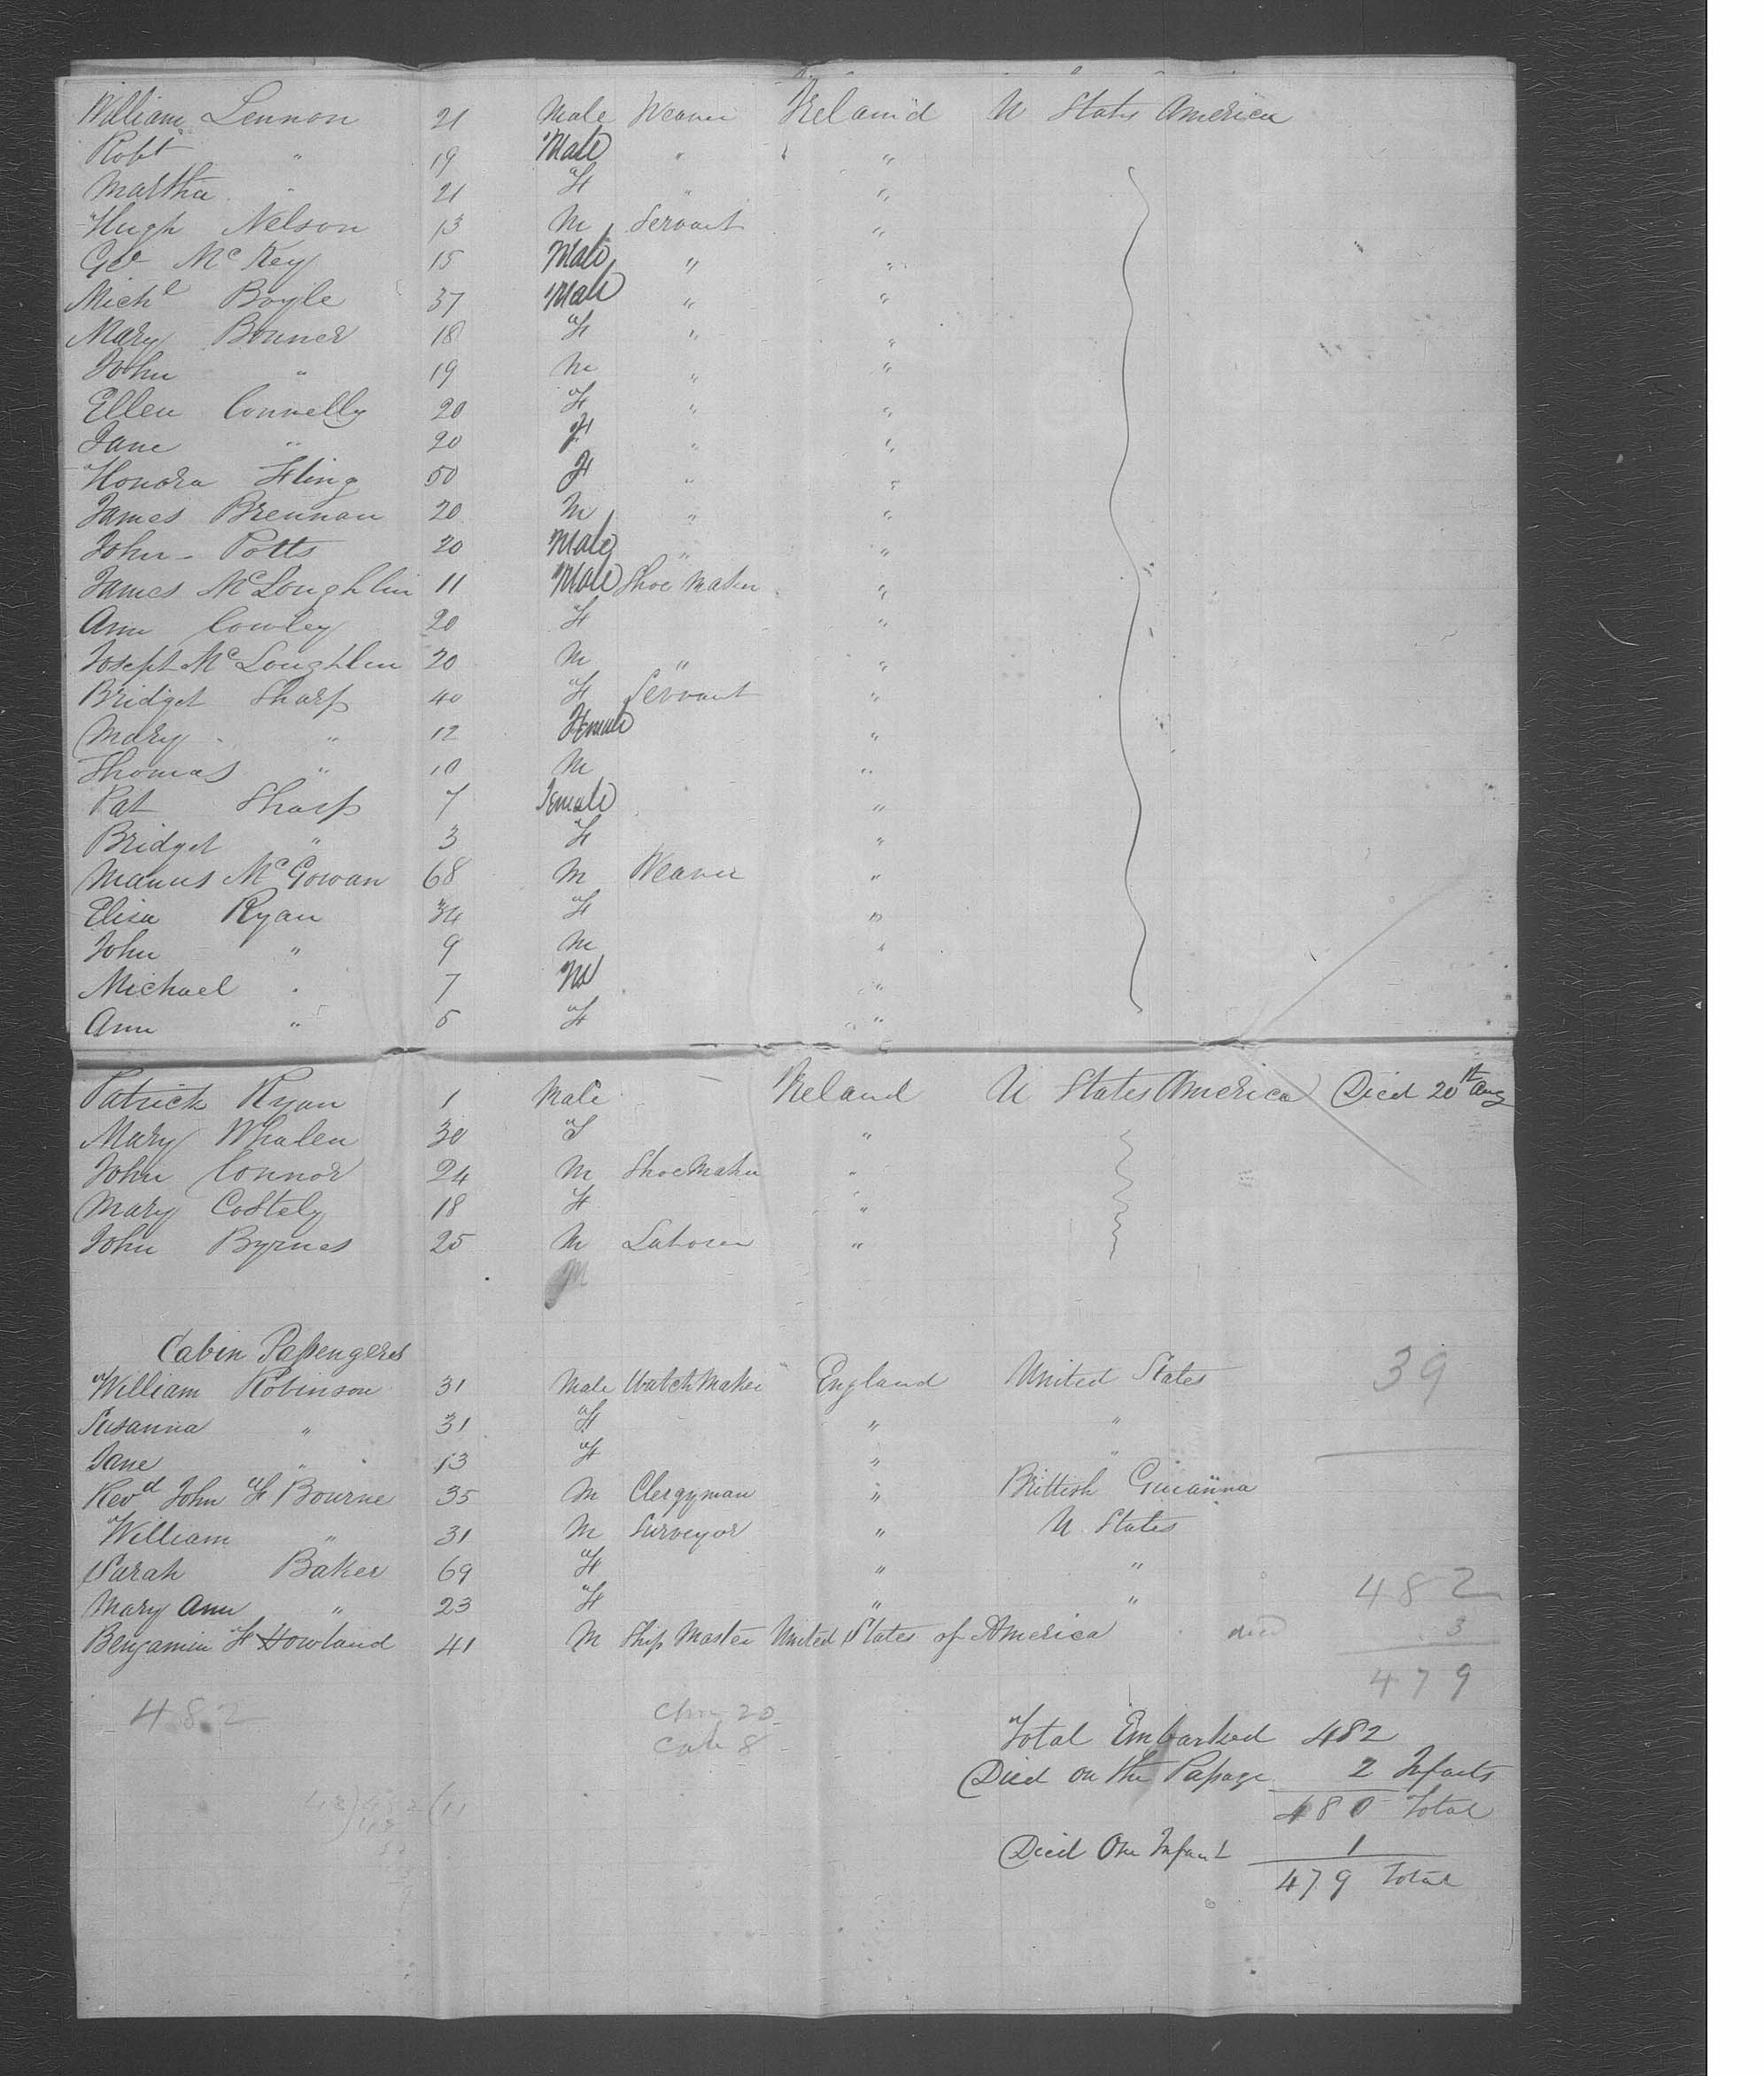 William Lennon 21 Male Weaver Ireland U States America
Robt " 19 Male " "
Martha " 21 F " "
Hugh Nelson 13 M Servant "
Geo McKey 15 Male " "
Michl Boyle 37 Male " "
Mary Bonner 18 F " "
John " 19 M " "
Ellen Connelly 20 F " "
Jane " 20 F " "
Honora Fling 50 F " "
James Brennan 20 M " "
John - Potts 20 Male " "
James McLoughlin 11 Male Shoe Maker "
Ann Cowley 20 F "
Joseph McLoughlin 20 M " "
Bridget Sharp 40 F Servant "
Mary " 12 Female "
Thomas " 10 M "
Pat Sharp 7 Female "
Bridget " 3 F "
Manus McGowan 68 M Weaver "
Elisa Ryan 34 F "
John " 9 M "
Michael " 7 M "
Ann " 5 F "
Patrick Ryan 1 Male Ireland U States America Died 20th Aug
Mary Whalen 30 F "
John Connor 24 M Shoemaker "
Mary Costely 18 F "
John Byrnes 25 M Laborer "
M
Cabin Passengers
William Robinson 31 Male Watchmaker England United States 39
Susanna " 31 F " "
Jane " 13 F " "
Revd John H Bourne 35 M Clergyman " Brittish Guianna
William " 31 M Surveyor " U. States
Sarah Baker 69 F " "
Mary Ann " 23 F " " 482
Benjamin H Howland 41 M Ship Master United States of America died 3
479
482 Chn 20
Cab 8
Total Embarked 482
Died on the Passage 2 Infants
480 Total
Died One Infant 1
479 Total